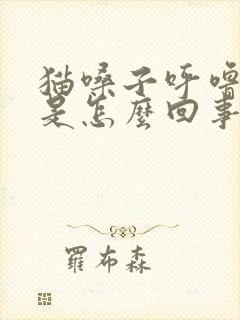 猫嗓子呼噜
是怎麼回事
羅布森